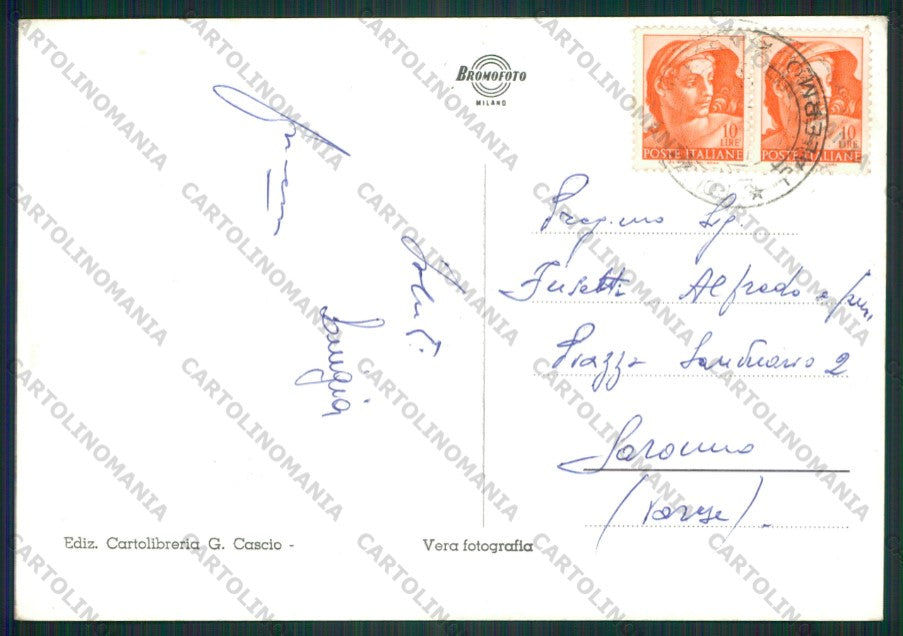 BROMOFOTO
MILANO
10
LIRE
POSTE ITALIANE
10
LIRE
POSTE ITALIANE
PALERMO
Saluti
Preg.mo Sig.
Fusetti Alfredo e fam.
Piazza Santuario 2
Saronno
(Varese).
Ediz. Cartolibreria G. Cascio -
Vera fotografia
CARTOLINOMANIA